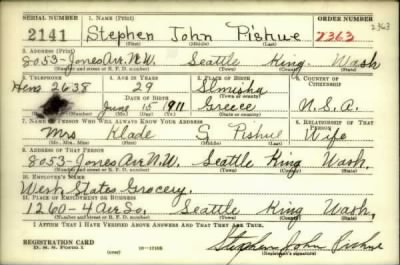 SERIAL NUMBER 1. NAME (Print) ORDER NUMBER
2141 Stephen John Pishue 7363 2363
(First) (Middle) (Last)
2. ADDRESS (Print)
8053-Jones Av. N.W. Seattle King Wash
(Number and street or R. F. D. number) (Town) (County) (State)
3. TELEPHONE 4. AGE IN YEARS 5. PLACE OF BIRTH 6. COUNTRY OF CITIZENSHIP
Hem 2638 29
DATE OF BIRTH (Town or county)
June 15 1911 Greece U.S.A.
(Mo.) (Day) (Yr.) (State or country)
7. NAME OF PERSON WHO WILL ALWAYS KNOW YOUR ADDRESS 8. RELATIONSHIP OF THAT PERSON
Mrs Klade G Pishue Wife
(Mr., Mrs., Miss) (First) (Middle) (Last)
9. ADDRESS OF THAT PERSON
8053-Jones Av N.W. Seattle King Wash.
(Number and street or R. F. D. number) (Town) (County) (State)
10. EMPLOYER'S NAME
West States Grocery.
11. PLACE OF EMPLOYMENT OR BUSINESS
1260-4 Av So. Seattle King Wash.
(Number and street or R. F. D. number) (Town) (County) (State)
I AFFIRM THAT I HAVE VERIFIED ABOVE ANSWERS AND THAT THEY ARE TRUE.
REGISTRATION CARD Stephen John Pishue
D. S. S. Form 1 (over) (Registrant's signature)